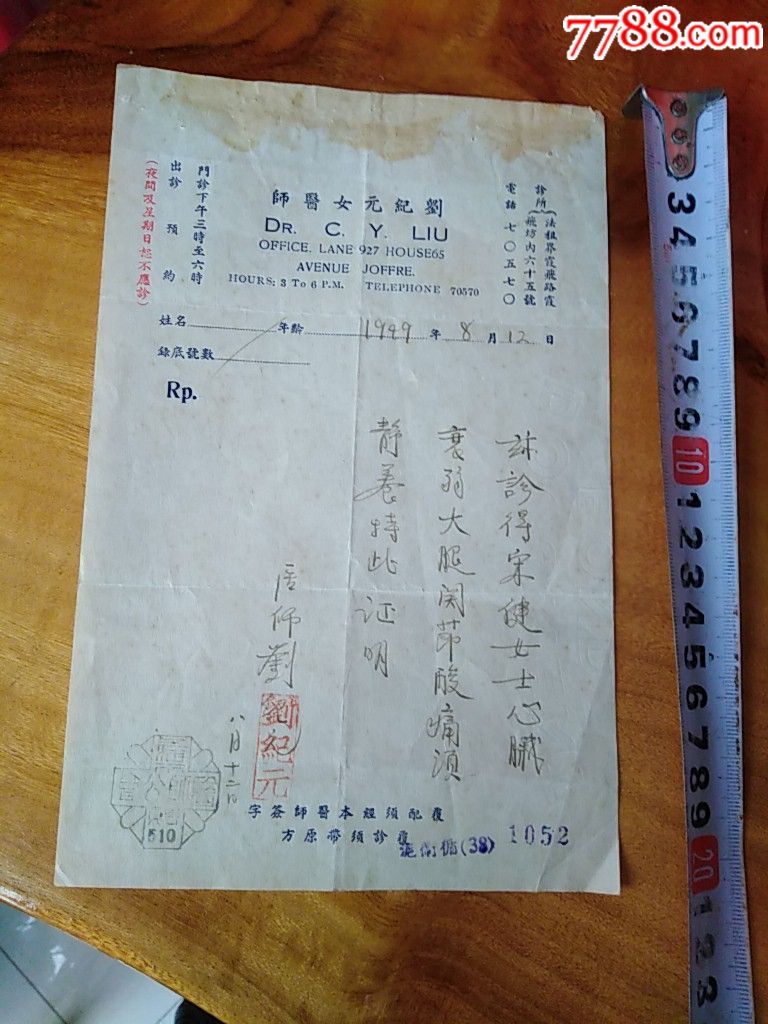 7788.com
師醫女元紀劉
DR. C. Y. LIU
OFFICE, LANE 927 HOUSE65
AVENUE JOFFRE.
HOURS: 3 To 6 P.M. TELEPHONE 70570
診所(法租界霞飛路霞
飛坊內六十五號
電話 七〇五七〇
門診下午三時至六時
出診預約
(夜間及星期日恕不應診)
姓名 年齡 1949 年 8 月 12 日
錄底號數
Rp.
茲診得宋健女士心臟
衰弱大腿関節酸痛須
靜养特此证明
医师劉
劉紀元
八月十二日
字簽師醫本經須配覆
方原帶須診覆
510
(38) 1052
3 4 5 6 7 8 9 10 1 2 3 4 5 6 7 8 9 20 1 2 3